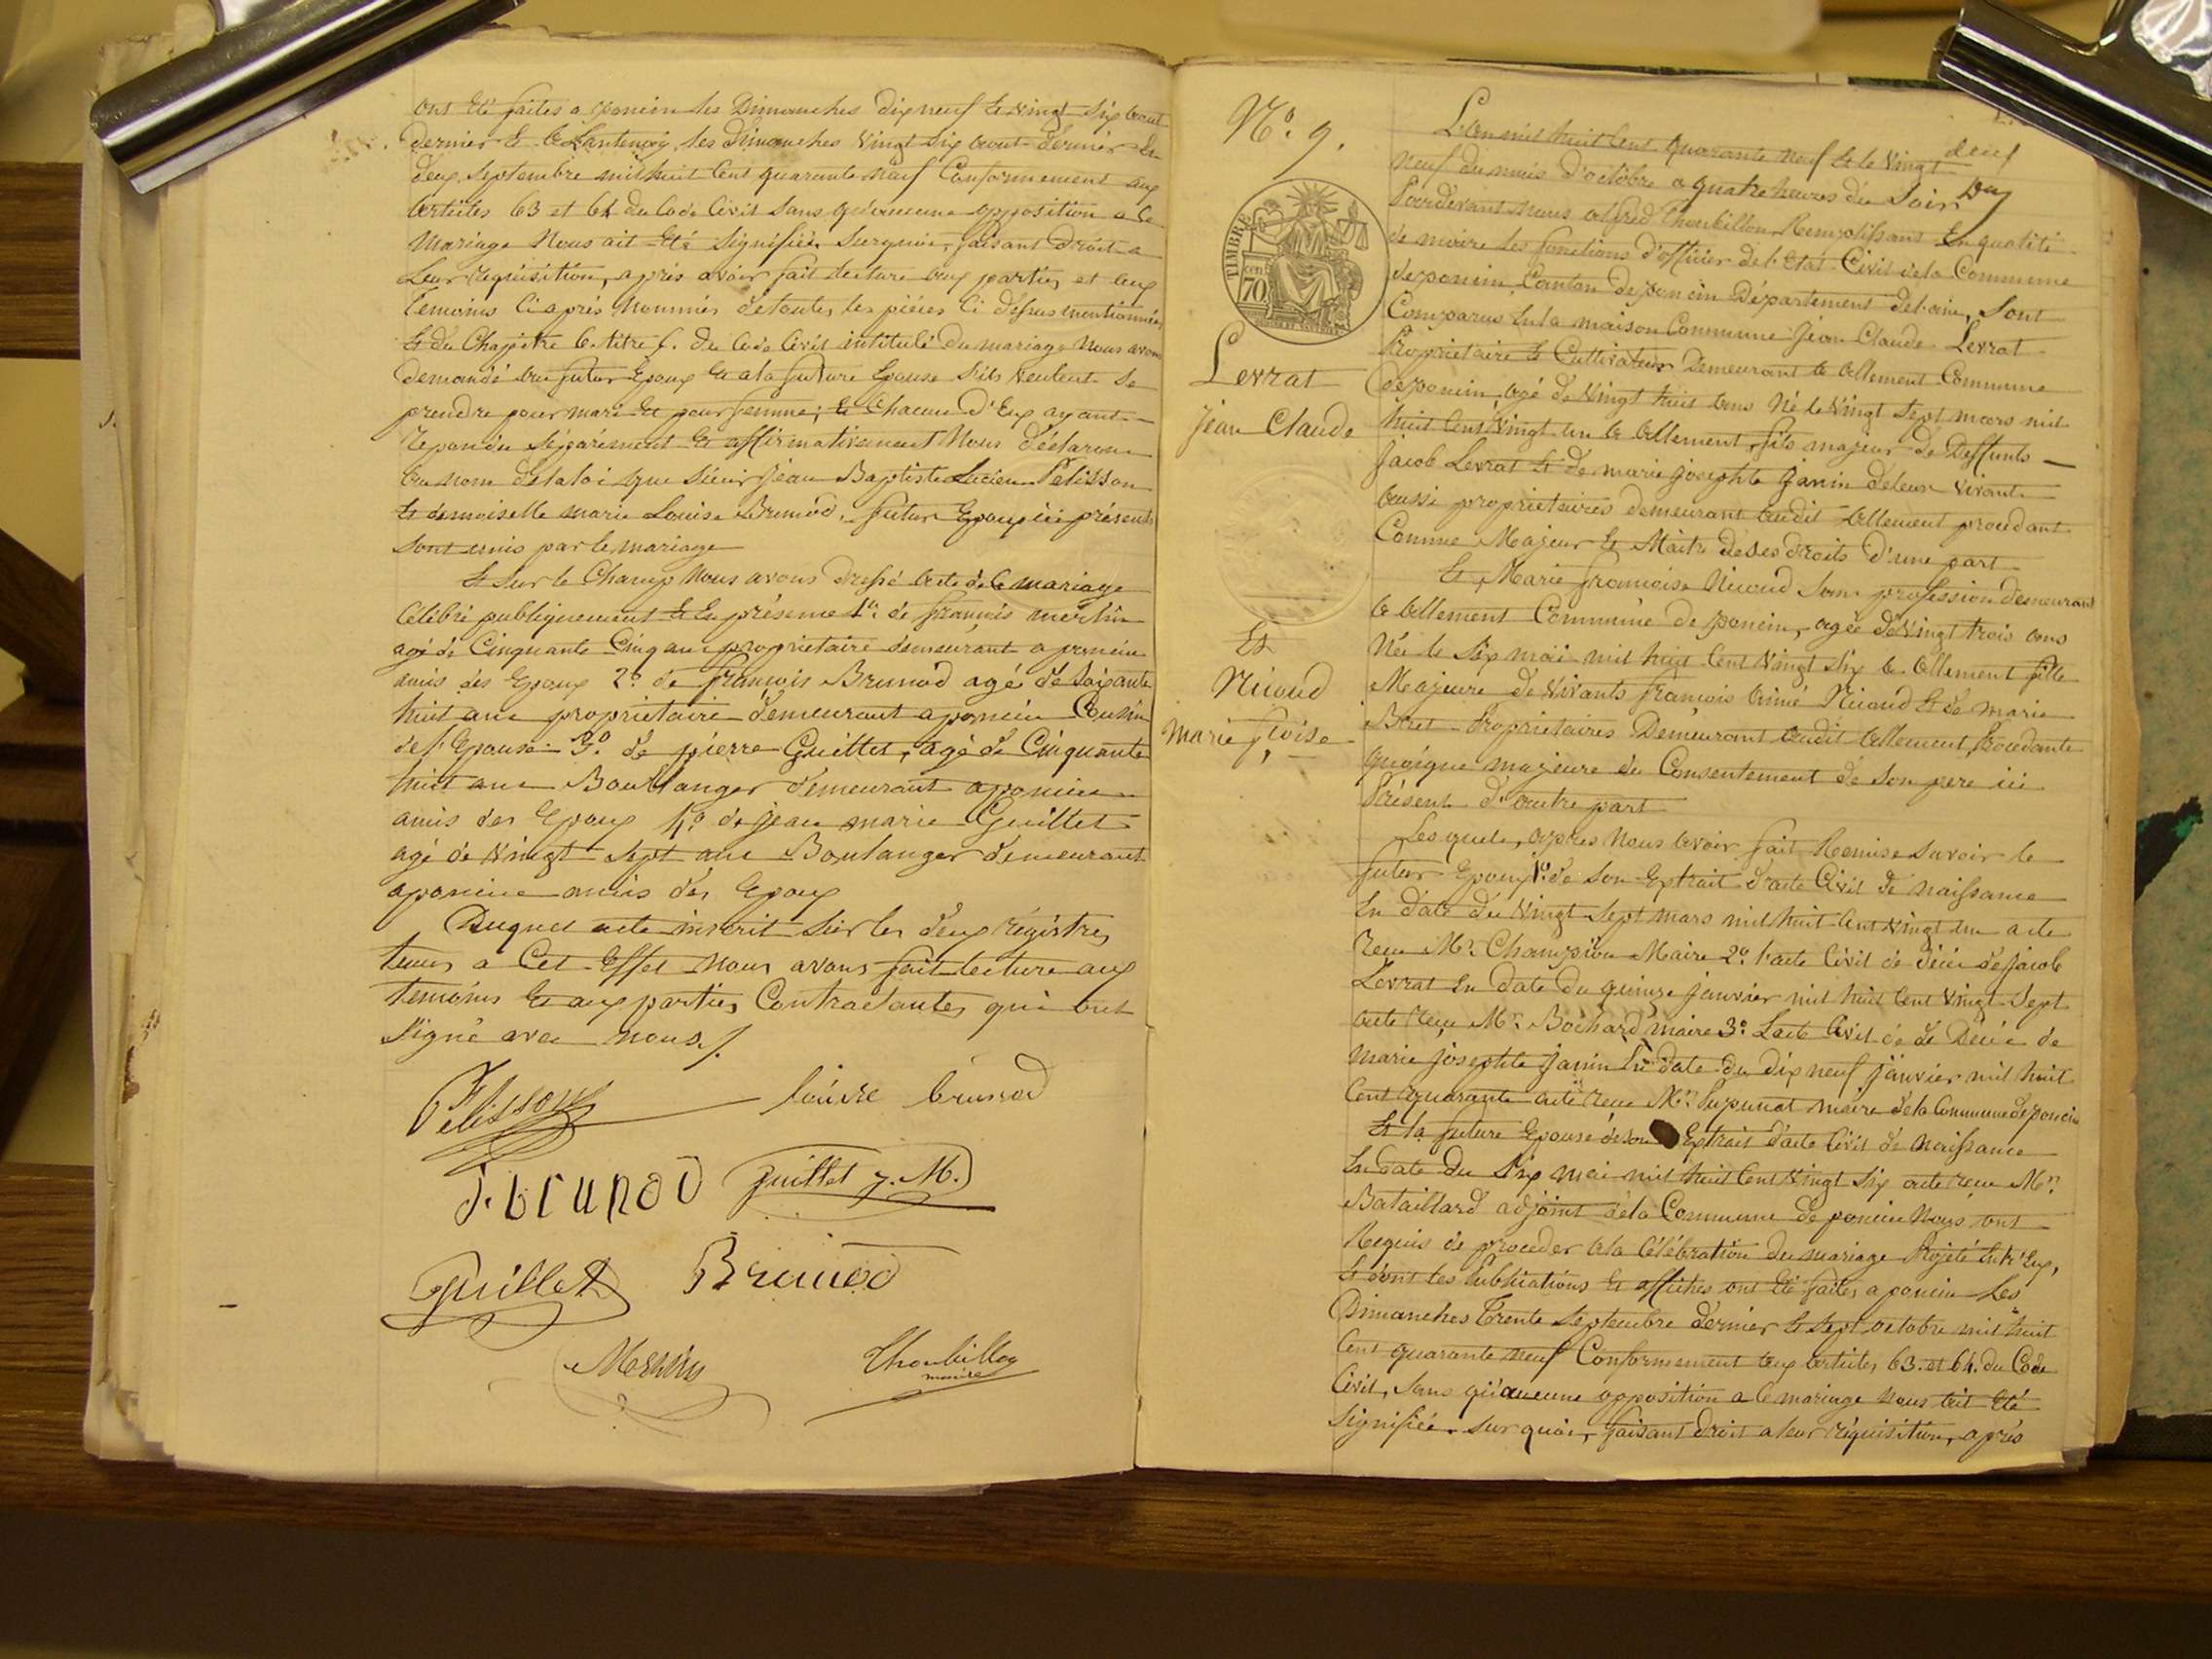 ont été faites a poncin les Dimanches dix neuf et vingt six aout
dernier et a les Dimanches vingt six aout dernier et
deux Septembre mil huit cent quarante neuf Conformement aux
articles 63 et 64 du Code Civil sans qu'aucune opposition a ce
mariage nous ait été signifiée surquoi, faisant droit a
leur requisition, après avoir fait lecture aux parties et aux
témoins ci après nommés de toutes les pièces ci dessus mentionnées
et du Chapitre 6. titre 5. du Code Civil intitulé du mariage nous avons
demandé au futur Epoux et a la future Epouse s'ils veulent se
prendre pour mari et pour femme; et chacun d'Eux ayant
repondu séparément et affirmativement Nous déclarons
au nom de la loi que sieur Jean Baptiste Lucien Pelisson
et demoiselle marie Louise Brunod, futur Epoux ici présents
sont unis par le mariage
Et sur le Champ nous avons dressé acte de ce mariage
célébré publiquement et En présence 1º. de françois merlin
agé de Cinquante Cinq ans proprietaire demeurant a poncin
amis des Epoux 2º. de françois Brunod agé de soixante
huit ans proprietaire demeurant a poncin Cousin
de l'Epouse 3º. de pierre Guillet, agé de Cinquante
huit ans Boullanger demeurant a poncin
amis des Epoux 4º. de jean marie Guillet
agé de vingt sept ans Boulanger demeurant
a poncin amis des Epoux
Duquel acte inscrit sur les deux régistres
tenus a Cet Effet nous avons fait lecture aux
temoins et aux parties Contractantes qui ont
signé avec nous./.
Pelisson louise brunod
f. brunod guillet J. M.
guillet Brunod
Thoubillon
maire
Nº. 9.
TIMBRE
cen
70
Levrat
Jean Claude
Et
Nicoud
marie fçoise
L'an mil huit cent quarante neuf et le vingt
neuf du mois d'octobre a quatre heures du soir
Pardevant nous alfred Thoubillon Remplissant En qualité
de maire les fonctions d'officier de l'Etat Civil de la Commune
de poncin, Canton de poncin Département de l'ain, Sont
Comparus En la maison Commune Jean Claude Levrat
Proprietaire et Cultivateur Demeurant a allement Commune
de poncin, agé de vingt huit ans né le vingt sept mars mil
huit cent vingt un a allement, fils majeur de Deffunts
Jacob Levrat et de marie josephte Janin de leur vivant
aussi proprietaires demeurant audit allement procédant
Comme Majeur et Maitre de ses droits d'une part
Et Marie françoise Nicoud sans profession demeurant
a allement Commune de poncin, agée de vingt trois ans
Née le six mai mil huit cent vingt six a allement fille
Majeure de vivants françois aimé Nicoud et de marie
Proprietaires Demeurant audit allement, Procédante
quoique majeure du Consentement de son pere ici
Présent d'autre part
Lesquels, après nous avoir fait Remise savoir le
futur Epoux 1º. de son Extrait d'acte Civil de naissance
En date du vingt sept mars mil huit cent vingt un acte
recu Mr. Champion Maire 2º. l'acte Civil de décés de Jacob
Levrat En date du quinze janvier mil huit cent vingt sept
acte recu Mr. Bochard maire 3º. L'acte Civil de Décés de
Marie josephte Janin En date du dix neuf janvier mil huit
cent quarante acte recu Mr. maire de la Commune de poncin
Et la future Epouse de son Extrait d'acte Civil de naissance
En date du six mai mil huit cent vingt six acte recu Mr.
Bataillard adjoint de la Commune de poncin Nous ont
Requis de proceder a la célébration du mariage Projeté Entr'Eux,
Et dont les Publications et affiches ont été faites a poncin Les
Dimanches Trente Septembre dernier et sept octobre mil huit
cent quarante neuf Conformement aux articles 63. et 64. du Code
Civil, sans qu'aucune opposition a ce mariage nous ait été
signifiée. sur quoi, faisant droit a leur réquisition, après